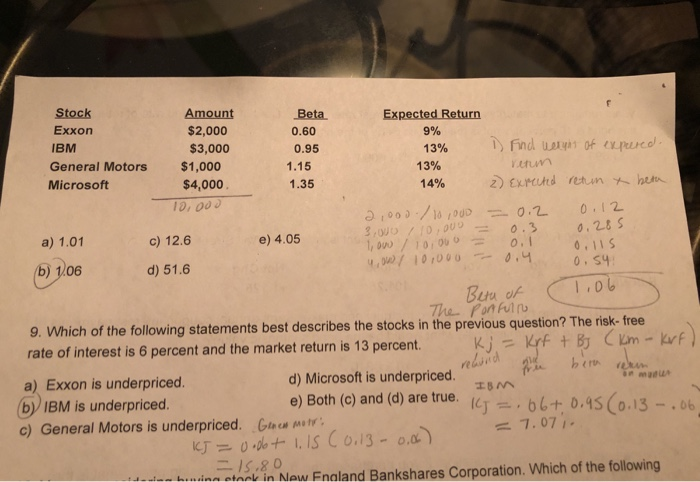 Stock Amount Beta Expected Return
Exxon $2,000 0.60 9%
IBM $3,000 0.95 13%
General Motors $1,000 1.15 13%
Microsoft $4,000 1.35 14%
10,000
1) Find weight of expected return
2) Expected return x beta
2,000 / 10,000 = 0.2 0.12
3,000 / 10,000 = 0.3 0.285
1,000 / 10,000 = 0.1 0.115
4,000 / 10,000 = 0.4 0.54
a) 1.01 c) 12.6 e) 4.05
b) 1.06 d) 51.6
1.06
Beta of
The Portfolio
9. Which of the following statements best describes the stocks in the previous question? The risk- free
rate of interest is 6 percent and the market return is 13 percent.
Kj = Krf + Bj (Km - Krf)
beta return
a) Exxon is underpriced. d) Microsoft is underpriced.
IBM
b) IBM is underpriced. e) Both (c) and (d) are true.
KJ = .06 + 0.95 (0.13 - .06
= 7.07%
c) General Motors is underpriced.
KJ = 0.06 + 1.15 (0.13 - 0.06)
= 15.80
buying stock in New England Bankshares Corporation. Which of the following